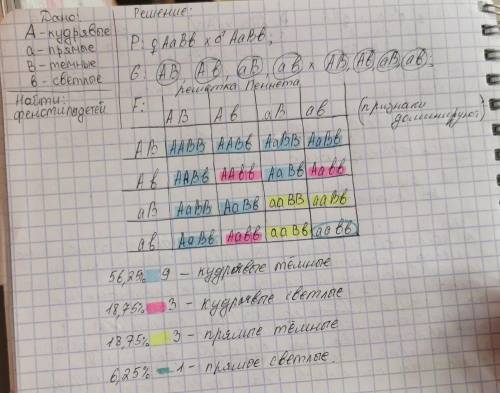 Дано:
А - кудрявые
а - прямые
В - темные
в - светлые
Найти:
фенотип детей
Решение:
Р: ♀ АаВв х ♂ АаВв;
G: АВ, Ав, аВ, ав х АВ, Ав, аВ, ав;
решётка Пеннета
F: АВ Ав аВ ав (признаки доминируют)
АВ ААВВ ААВв АаВВ АаВв
Ав ААВв ААвв АаВв Аавв
аВ АаВВ АаВв ааВВ ааВв
ав АаВв Аавв ааВв аавв
56,25% 9 - кудрявые тёмные
18,75% 3 - кудрявые светлые
18,75% 3 - прямые тёмные
6,25% - 1 - прямые светлые.